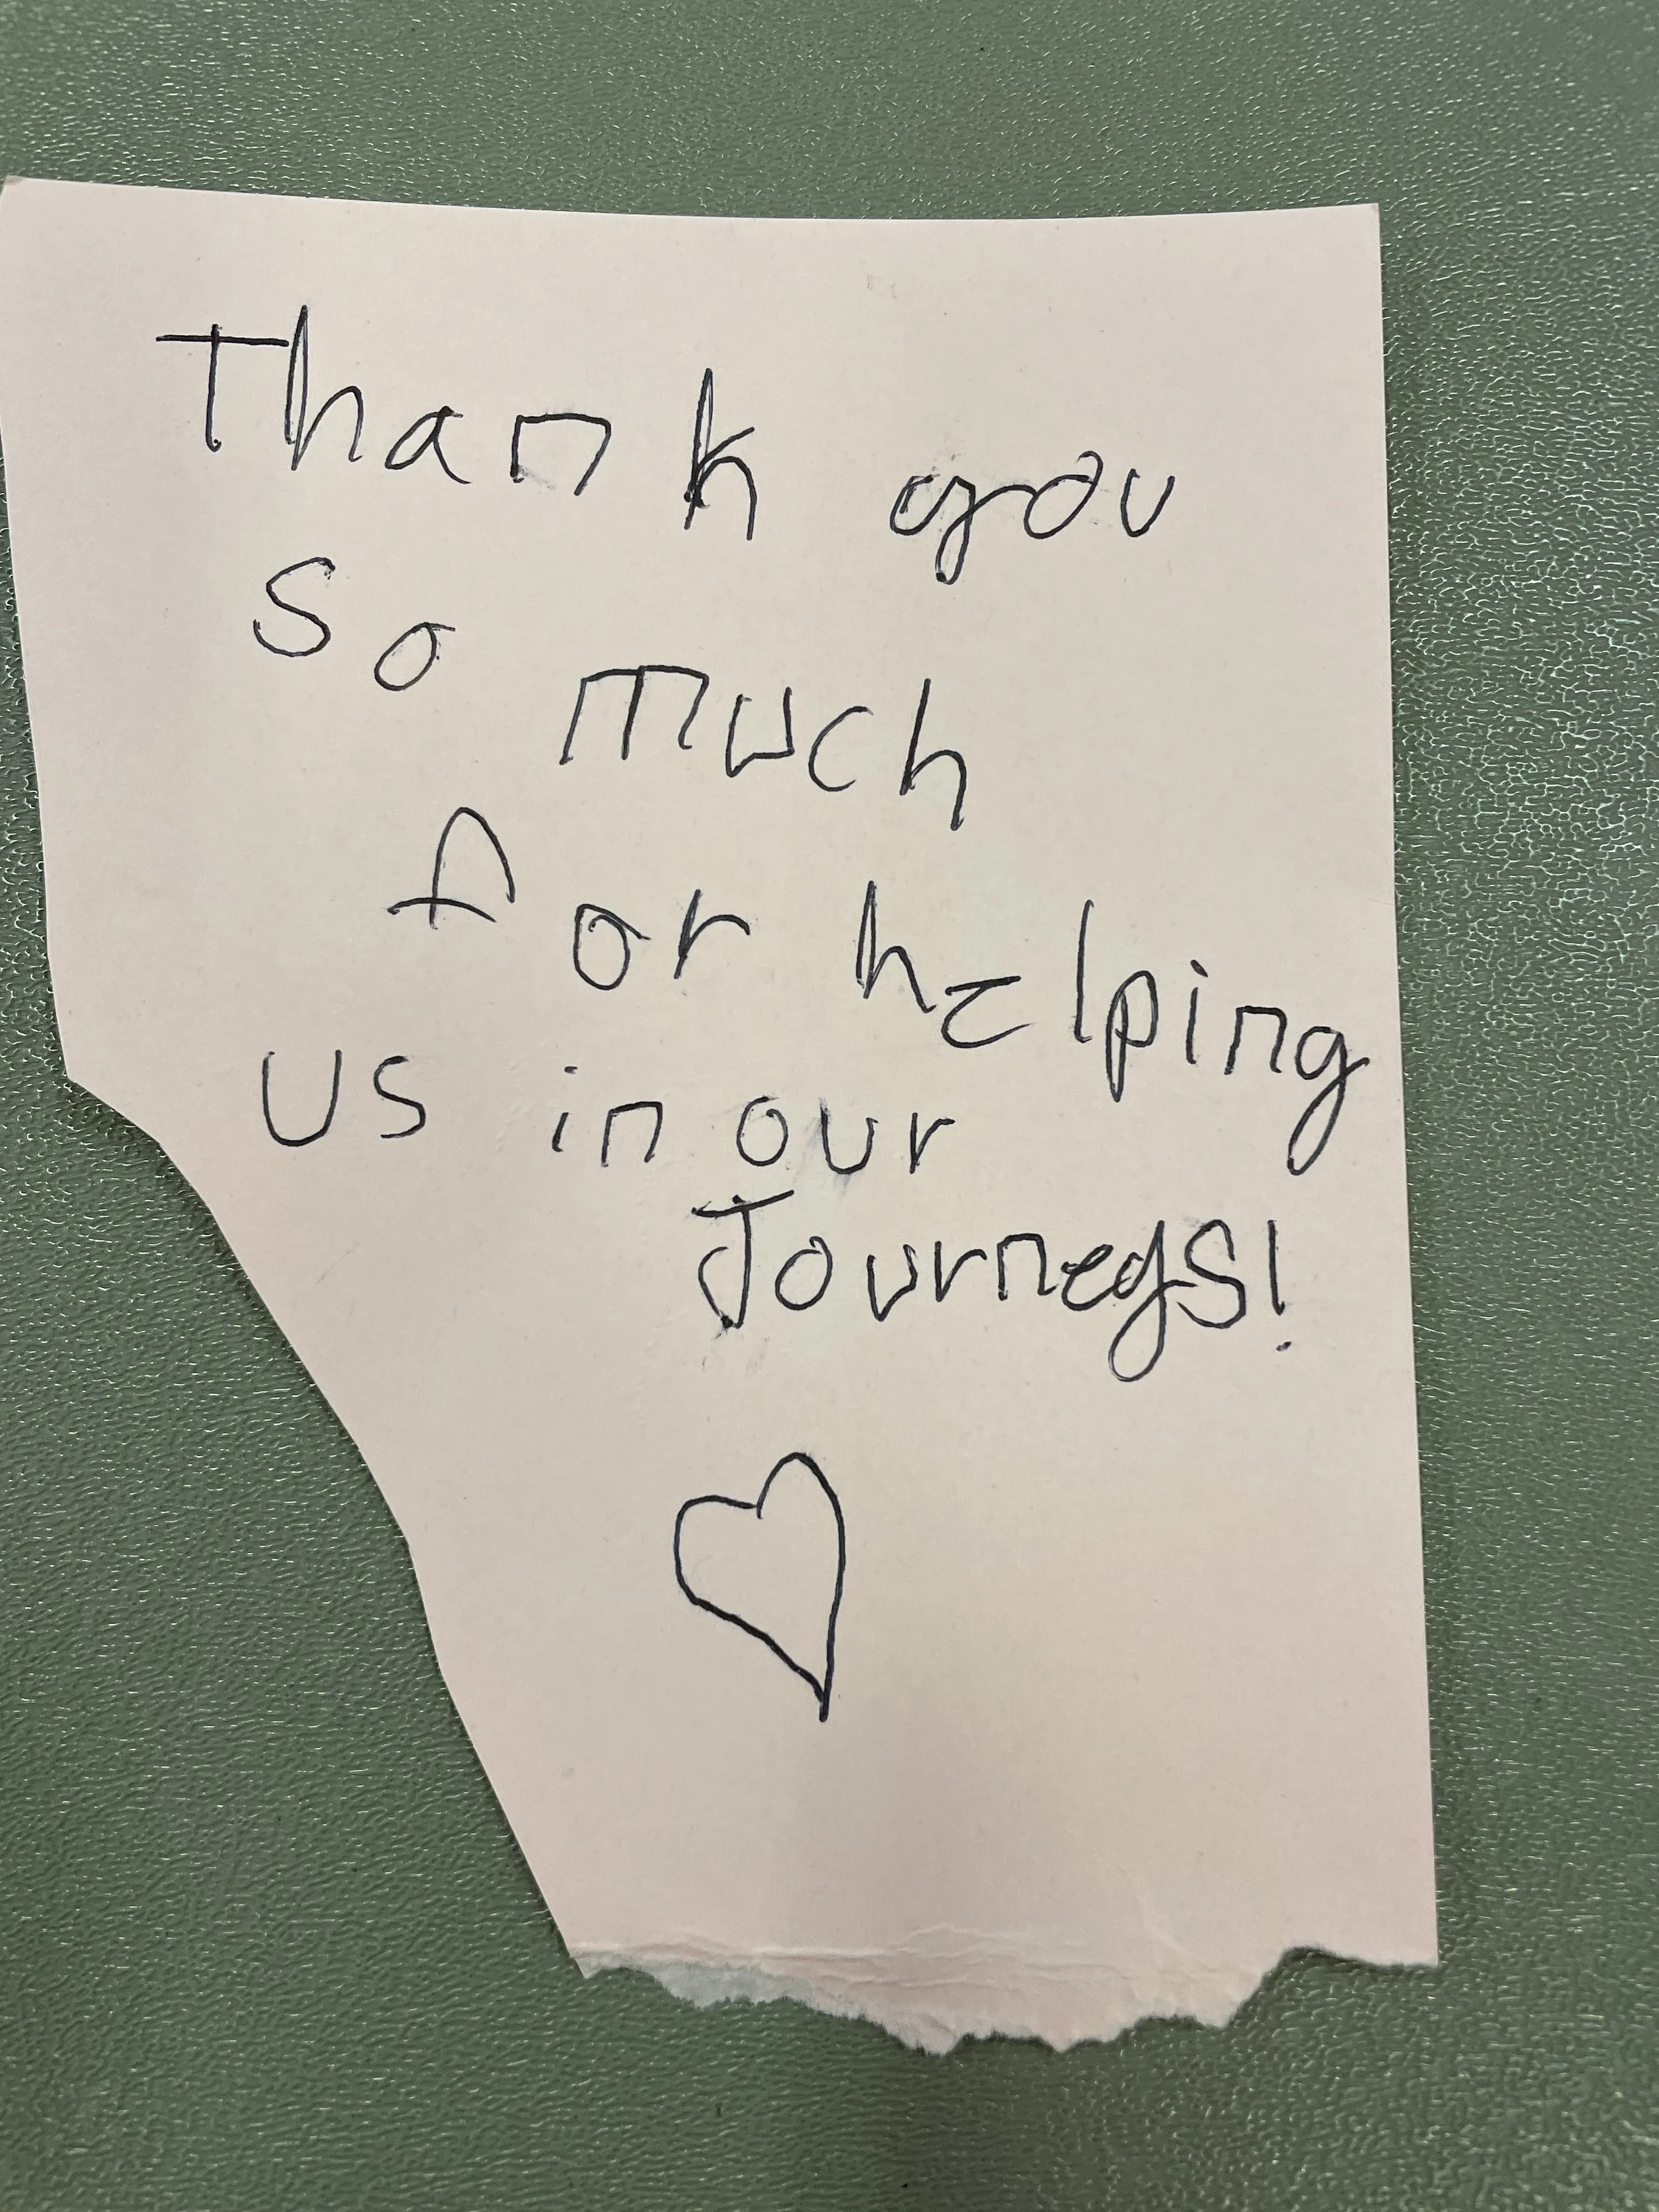 Thank you
so much
for helping
us in our
Journeys!